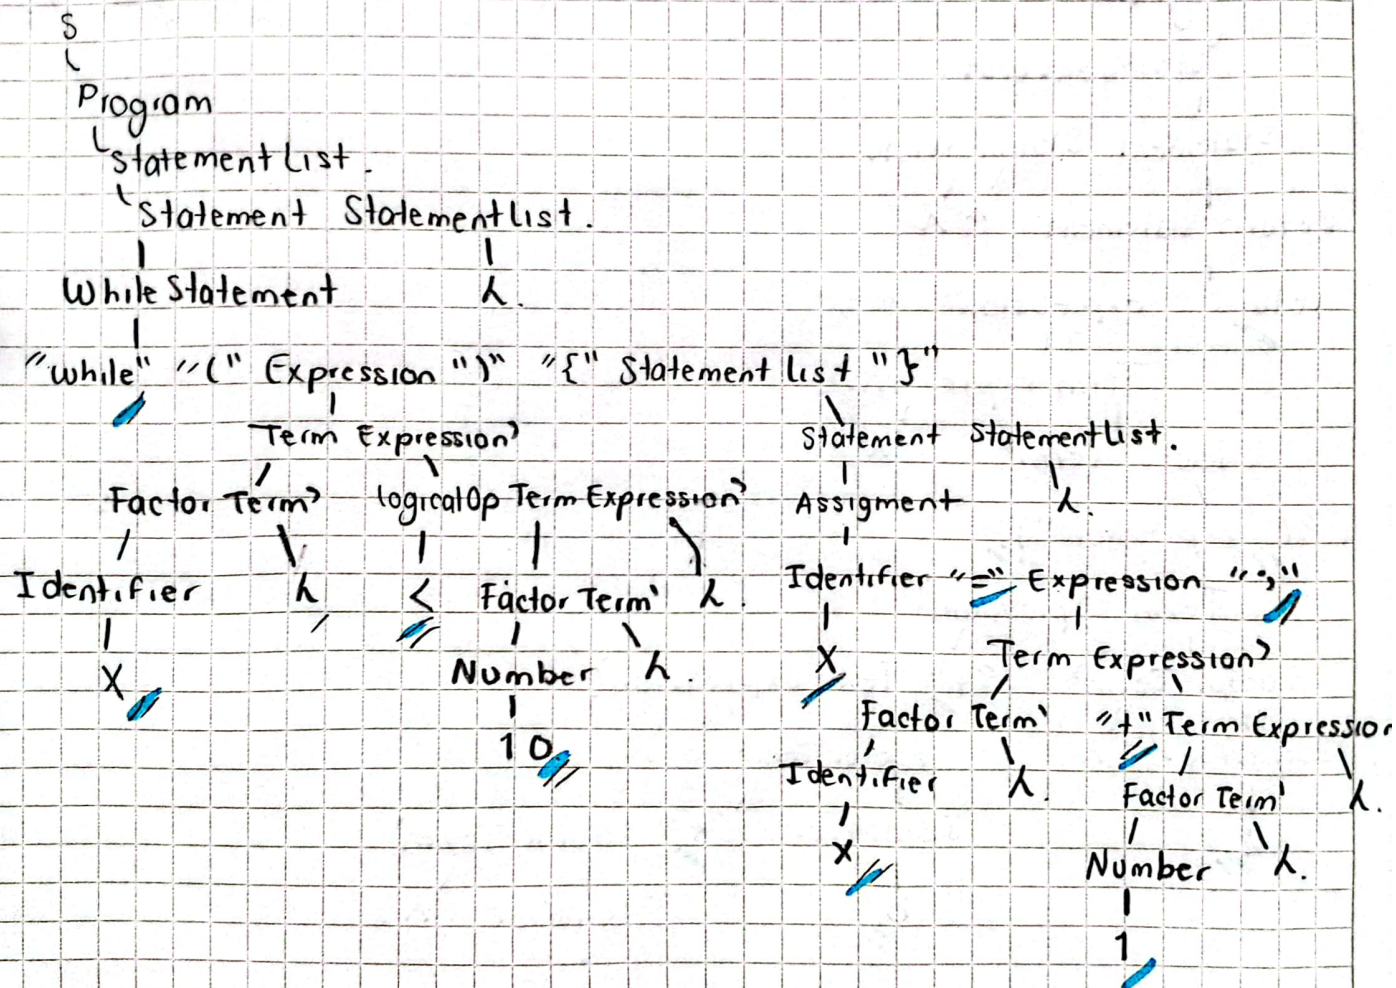 S
Program
Statement List.
Statement StatementList.
While Statement λ.
"while" "(" Expression ")" "{" Statement list "}"
Term Expression' Statement StatementList.
Factor Term' logicalOp Term Expression' Assigment λ.
Identifier λ < Factor Term' λ. Identifier "=" Expression ";"
X Number λ. X Term Expression'
10 Factor Term' "+" Term Expression
Identifier λ. Factor Term' λ.
X Number λ.
1